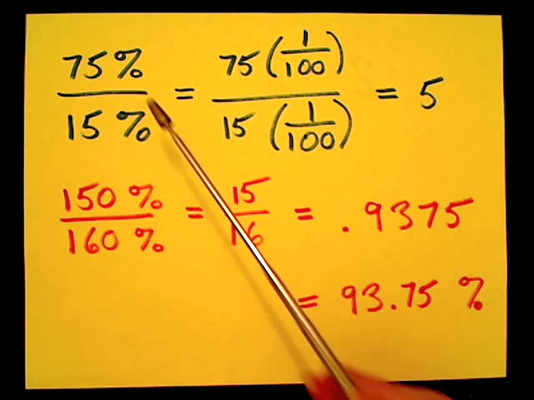 75% / 15% = 75(1/100) / 15(1/100) = 5
150% / 160% = 15/16 = .9375
= 93.75%